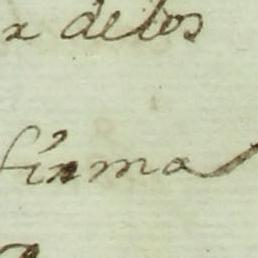 x delos
firma